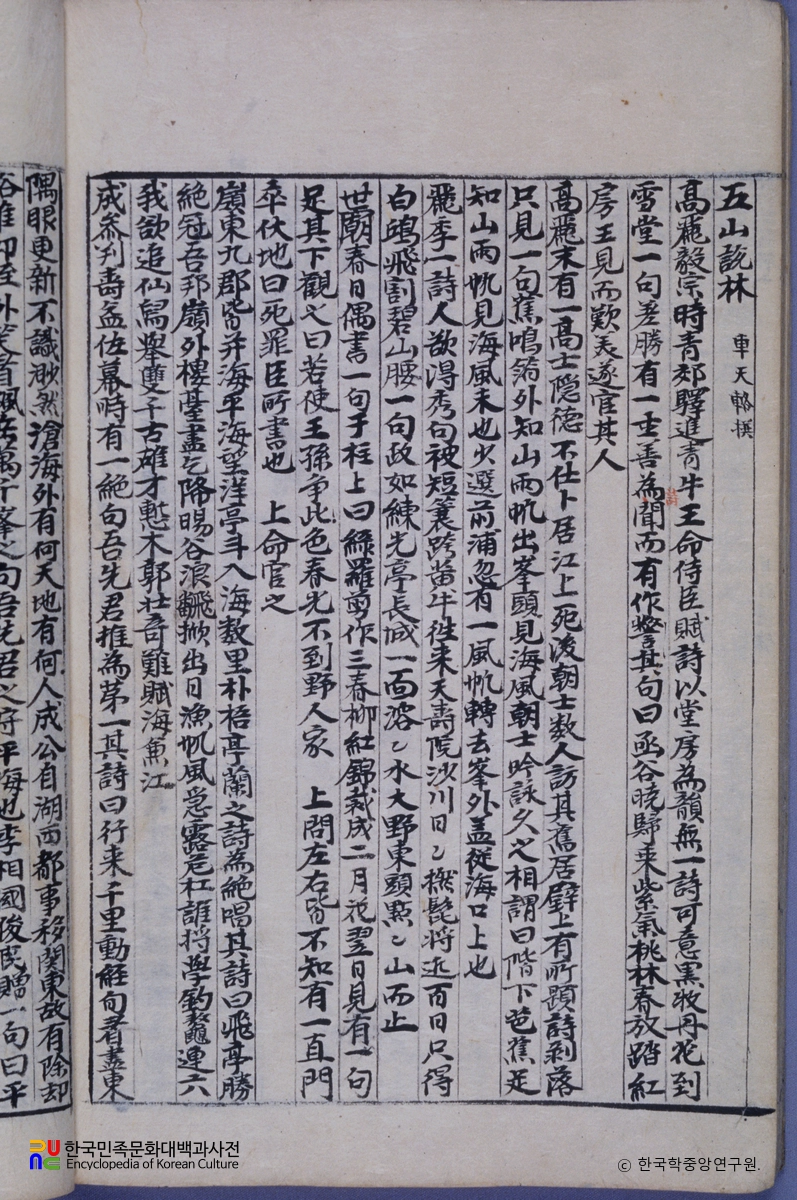 五山說林 車天輅撰
高麗毅宗時青郊驛進青牛王命侍臣賦詩以堂房為韻無一詩可意黑牧丹花到
雪堂一句差勝有一士善為聞而有作驚其句曰函谷曉歸来紫氣桃林春放踏紅
房王見而歎美遂官其人
高麗末有一高士隠德不仕卜居江上死後朝士数人訪其舊居壁上有所題詩剥落
只見一句蕉鳴箔外知山雨帆出峯頭見海風朝士吟詠久之相謂曰階下芭蕉足
知山雨帆見海風未也少選前浦忽有一風帆轉去峯外盖從海口上也
麗季一詩人欲得秀句被短蓑跨黄牛徃来天壽院沙川日〻撚髭将近百日只得
白鷗飛割碧山腰一句政如練光亭長城一面溶〻水大野東頭點〻山而止
世廟春日偶書一句于柱上曰綠羅剪作三春柳紅錦裁成二月花翌日見有一句
足其下觀之曰若使王孫争此色春光不到野人家 上問左右皆不知有一直門
卒伏地曰死罪臣所書也 上命官之
嶺東九郡皆并海平海望洋亭斗入海数里朴梧亭蘭之詩為絶唱其詩曰飛亭勝
絶冠吾邦嶺外樓臺盡乞降暘谷浪飜掀出日漁帆風急露危杠誰将學釣鰲連六
我欲追仙舃擧雙千古雄才慙木郭壮奇難賦海魚江
成叅判壽益佐幕時有一絶句吾先君推為第一其詩曰行来千里動經旬看盡東
隅眼更新不識渺然滄海外有何天地有何人成公自湖西都事移関東故有除却
萬千峯之句吾先君之守平海也李相國俊民贈一句曰平